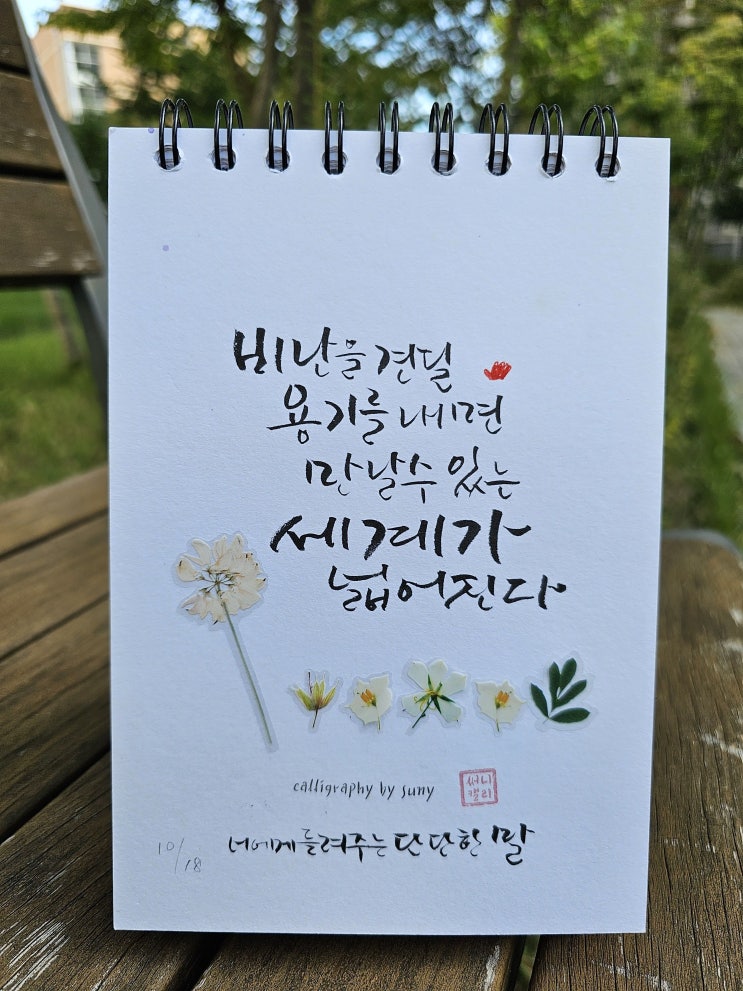 비난을 견딜
용기를 내면
만날 수 있는
세계가
넓어진다
calligraphy by suny
써니
캘리
10/18
너에게 들려주는 단단한 말